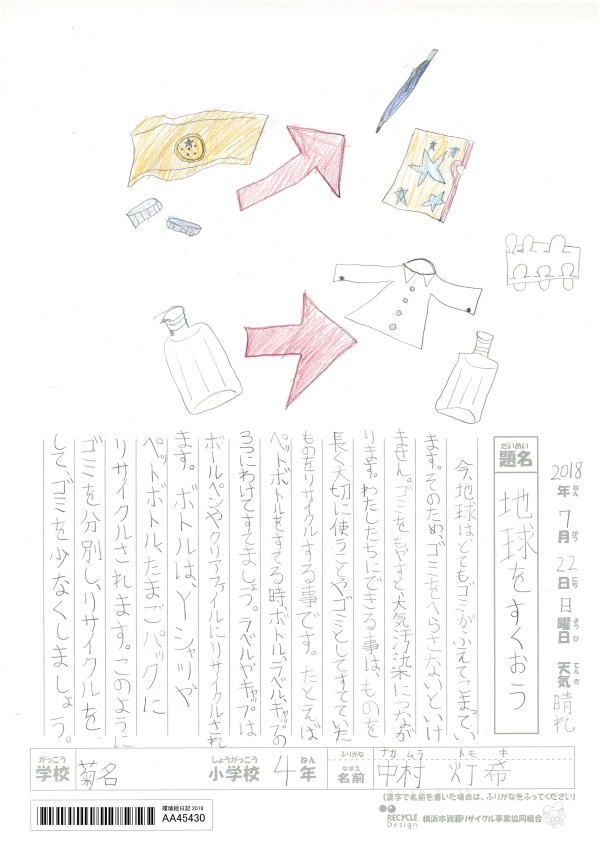 2018年ねん7月がつ22日にち日曜日ようび 天気てんき晴れ
だいめい
題名
地球をすくおう
今、地球は、とてもゴミがふえてこまってい
ます。そのため、ゴミをへらさこないといけ
ません。ゴミをもやすと、大気汚染につなが
ります。わたしたちにできる事は、ものを
長く大切に使うことやゴミとしてすてていた
ものをリサイクルする事です。たとえば
ペットボトルをすてる時、ボトル、ラベル、キャップの
3つにわけてすてましょう。ラベルやキャップは
ボールペンやクリアファイルにリサイクルされ
ます。ボトルは、Yシャツや
ペットボトル、たまごパックに
リサイクルされます。このように
ゴミを分別し、リサイクルを
して、ゴミを少なくしましょう。
がっこう
学校
菊名
しょうがっこう
小学校
4
ねん
年
ふりがな
ナカムラ トモキ
なまえ
名前
中村 灯希
(漢字で名前を書いた場合は、ふりがなをふってください)
環境絵日記 2018
AA45430
RECYCLE Design
横浜市資源リサイクル事業協同組合